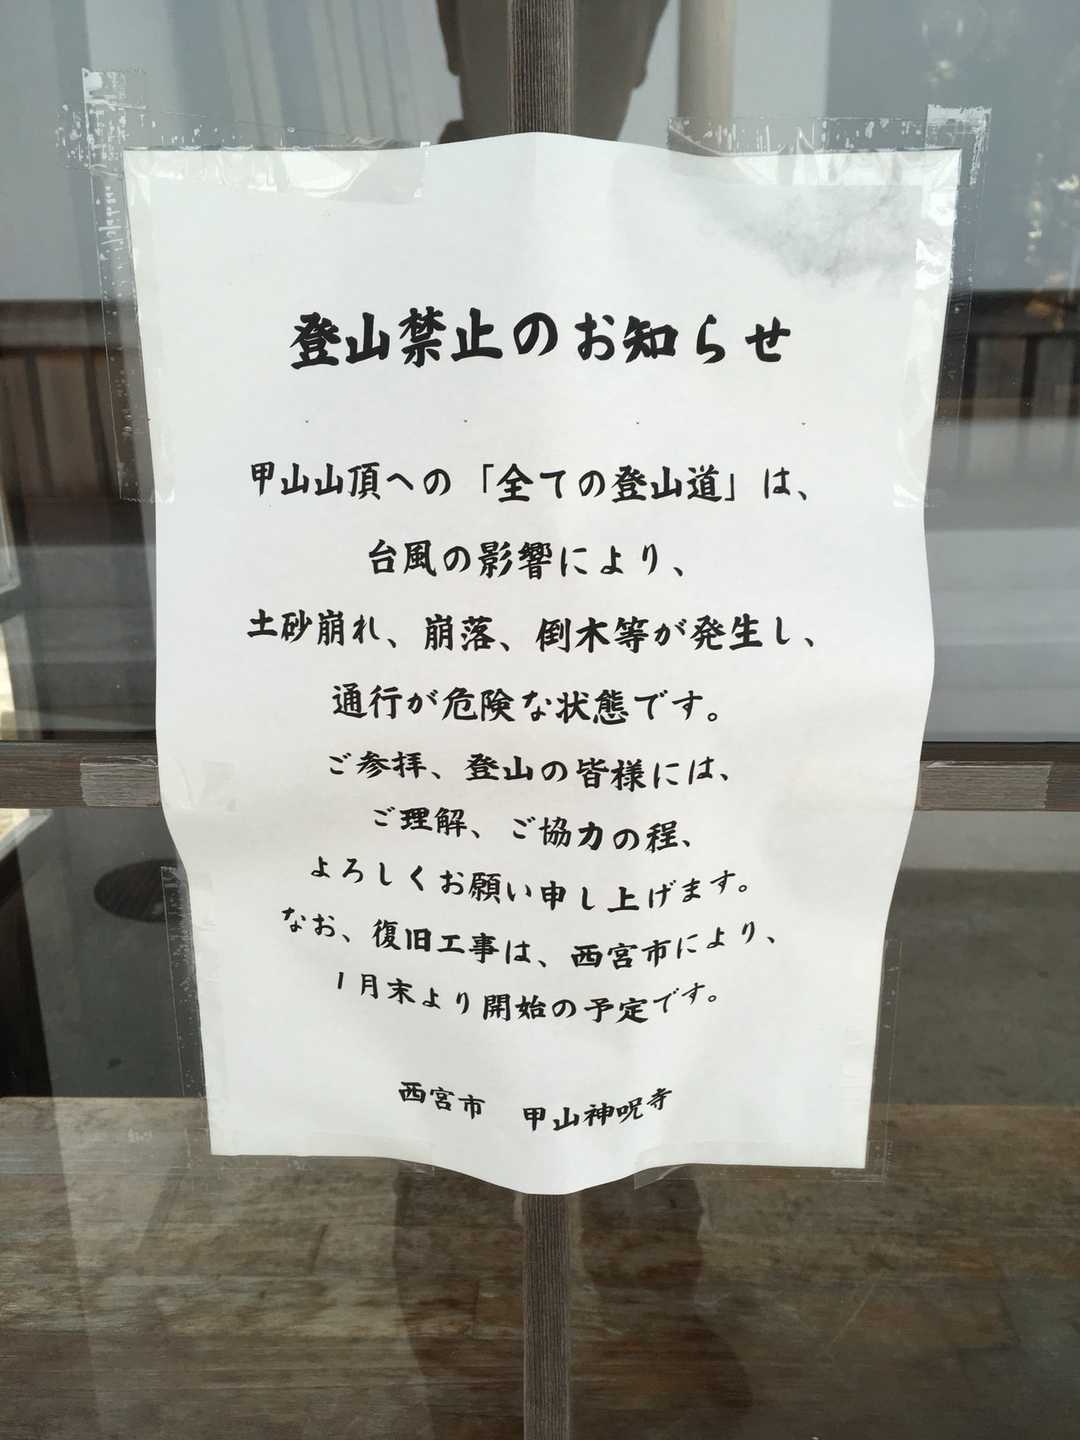 登山禁止のお知らせ
甲山山頂への「全ての登山道」は、
台風の影響により、
土砂崩れ、崩落、倒木等が発生し、
通行が危険な状態です。
ご参拝、登山の皆様には、
ご理解、ご協力の程、
よろしくお願い申し上げます。
なお、復旧工事は、西宮市により、
1月末より開始の予定です。
西宮市　甲山神呪寺